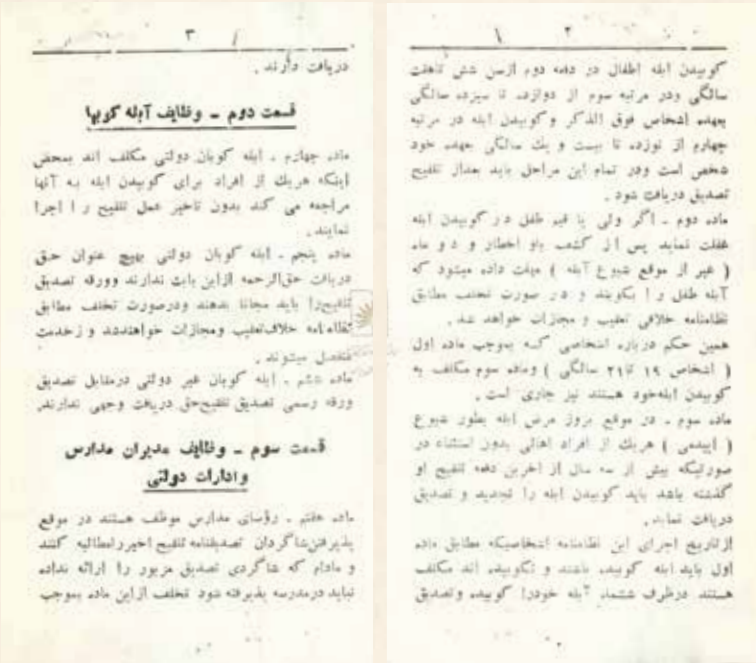 ۲
کوبیدن ابله اطفال در دفعه دوم ازسن شش تاهفت
سالگی ودر مرتبه سوم از دوازده تا سیزده سالگی
بعهده اشخاص فوق الذکر وکوبیدن ابله در مرتبه
چهارم از نوزده تا بیست و یک سالگی بعهده خود
شخص است ودر تمام این مراحل باید بعداز تلقیح
تصدیق دریافت شود .
ماده دوم . اگر ولی یا قیم طفل در کوبیدن ابله
غفلت نماید پس از کشف باو اخطار و دو ماه
( غیر از موقع شیوع آبله ) مهلت داده میشود که
آبله طفل را بکوبند و در صورت تخلف مطابق
نظامنامه خلافی تعقیب و مجازات خواهد شد .
همین حکم درباره اشخاصی که بموجب ماده اول
( اشخاص ۱۹ تا۲۱ سالگی ) وماده سوم مکلف به
کوبیدن ابله‌خود هستند نیز جاری است .
ماده سوم . در موقع بروز مرض ابله بطور شیوع
( اپیدمی ) هریک از افراد اهالی بدون استثناء در
صورتیکه بیش از سه سال از اخرین دفعه تلقیح او
گذشته باشد باید کوبیدن ابله را تجدید و تصدیق
دریافت نماید .
ازتاریخ اجرای این نظامنامه اشخاصیکه مطابق ماده
اول باید ابله کوبیده باشند و نکوبیده اند مکلف
هستند درظرف ششماه آبله خودرا کوبیده وتصدیق
۳
دریافت دارند .
قسمت دوم ـ وظایف آبله کوبها
ماده چهارم . ابله کوبان دولتی مکلف اند بمحض
اینکه هریک از افراد برای کوبیدن ابله به آنها
مراجعه می کند بدون تاخیر عمل تلقیح را اجرا
نمایند .
ماده پنجم . ابله کوبان دولتی بهیچ عنوان حق
دریافت حق‌الزحمه ازاین بابت ندارند وورقه تصدیق
تلقیح‌را باید مجانا بدهند ودرصورت تخلف مطابق
نظامنامه خلاف‌تعقیب ومجازات خواهندشد و ازخدمت
منفصل میشوند .
ماده ششم . ابله کوبان غیر دولتی درمقابل تصدیق
ورقه رسمی تصدیق تلقیح‌حق دریافت وجهی ندارند.
قسمت سوم ـ وظایف مدیران مدارس
وادارات دولتی
ماده هفتم . رؤسای مدارس موظف هستند در موقع
پذیرفتن‌شاگردان تصدیقنامه تلقیح اخیررامطالبه کنند
و مادام که شاگردی تصدیق مزبور را ارائه نداده
نباید درمدرسه پذیرفته شود تخلف ازاین ماده بموجب